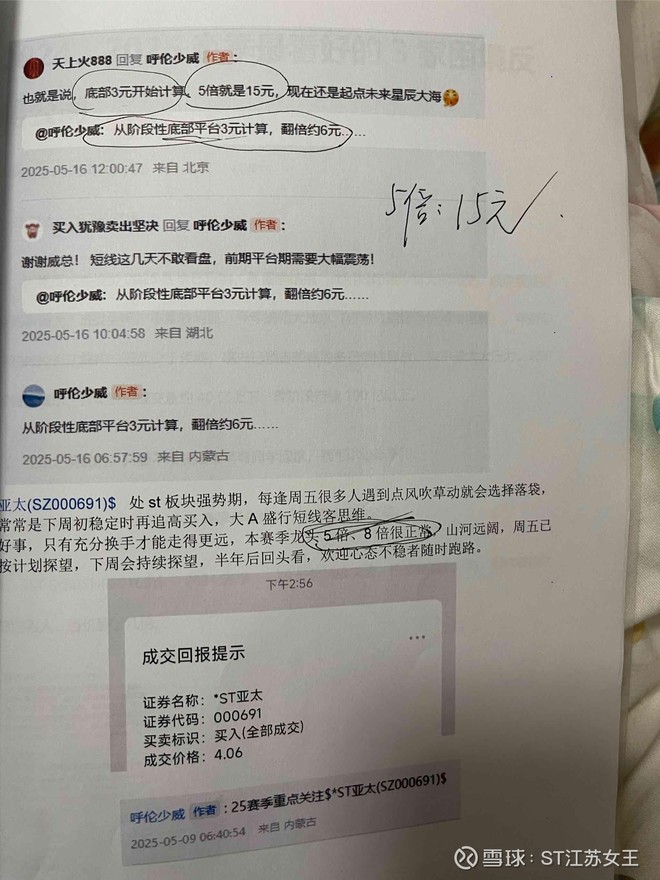 天上火888 回复 呼伦少威 作者：
也就是说，底部3元开始计算、5倍就是15元，现在还是起点未来星辰大海
@呼伦少威：从阶段性底部平台3元计算，翻倍约6元……
2025-05-16 12:00:47 来自 北京
5倍：15元
买入犹豫卖出坚决 回复 呼伦少威 作者：
谢谢威总！ 短线这几天不敢看盘，前期平台期需要大幅震荡！
@呼伦少威：从阶段性底部平台3元计算，翻倍约6元……
2025-05-16 10:04:58 来自 湖北
呼伦少威 作者：
从阶段性底部平台3元计算，翻倍约6元……
2025-05-16 06:57:59 来自 内蒙古
亚太(SZ000691)$ 处 st 板块强势期，每逢周五很多人遇到点风吹草动就会选择落袋，
常常是下周初稳定时再追高买入，大 A 盛行短线客思维。
好事，只有充分换手才能走得更远，本赛季龙头 5 倍、8 倍很正常，山河远阔，周五已
按计划探望，下周会持续探望，半年后回头看，欢迎心态不稳者随时跑路。
下午2:56
成交回报提示
证券名称：*ST亚太
证券代码：000691
买卖标识：买入(全部成交)
成交价格：4.06
呼伦少威 作者：25赛季重点关注$*ST亚太(SZ000691)$
2025-05-09 06:40:54 来自 内蒙古
雪球：ST江苏女王